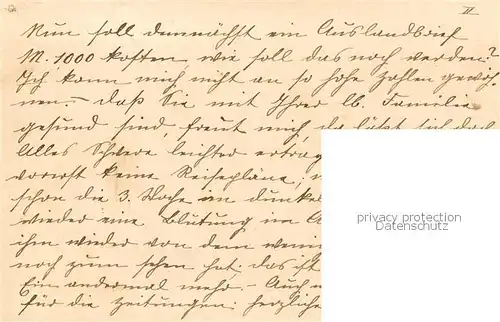 II
Nun soll demnächst ein Auslandsbrief
M. 1000 kosten, wie soll das noch werden?
Ich kann mich nicht an so hohe Zahlen gewöh-
nen. – Daß Sie mit Ihrer lb. Familie
gesund sind, freut mich, da läßt sich doch
Alles Schwere leichter
vorerst keine Reisepläne,
schon die 3. Woche im
wieder eine Blutung im
ihm wieder von dem
noch zum sehen hat; das ist
Ein andermal mehr. – Auch
für die Zeitungen; herzliche
privacy protection
Datenschutz